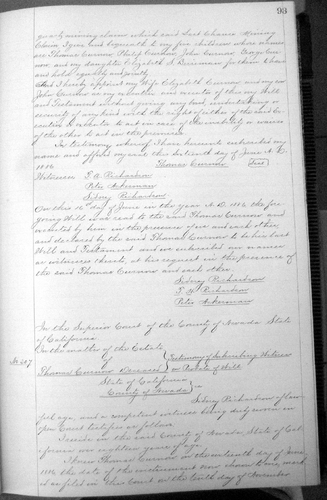 93
quartz mining claim which said Last Chance Mining
Claim I give and bequeath to my five children whose names
are Thomas Curnow, Philip Curnow, John Curnow, George Cur-
now and my daughter Elizabeth J. to them to share
and hold equally and jointly
And I hereby appoint my wife Elizabeth Curnow and my son
John Curnow as my executrix and executor of this my Will
and Testament without giving any bond, undertaking or
security of any kind with the right of either of the said Ex-
ecutors to act in case of the inability or
of the other to act in the premises.
In testimony whereof I have hereunto subscribed my
name and affixed my seal this day of June A.D.
1886.
Thomas Curnow Seal
Witnesses F. A. Richardson
Peter Ackerman
Sidney Richardson
On this day of June in the year A.D. 1886 the fore
going Will was read to the said Thomas Curnow and sub-
scribed by him in the presence of us and each other
and declared by the said Thomas Curnow to be his last
Will and Testament and we subscribed our names
as witnesses thereto, at his request in the presence of
the said Thomas Curnow and each other.
Sidney Richardson
F. A. Richardson
Peter Ackerman
In the Superior Court of the County of Nevada State
of California
In the matter of the Estate
of
Thomas Curnow Deceased
Testimony of Subscribing Witness
on Probate of Will
State of California
County of Nevada
Sidney Richardson of law
ful age, and a competent witness being duly sworn in
open Court testifies as follows
I reside in the said County of Nevada State of Cal
ifornia am eighteen years of age.
I knew Thomas Curnow on the day of June
1886, the date of the instrument now shown to me, mark-
ed as filed in this Court on the tenth day of November